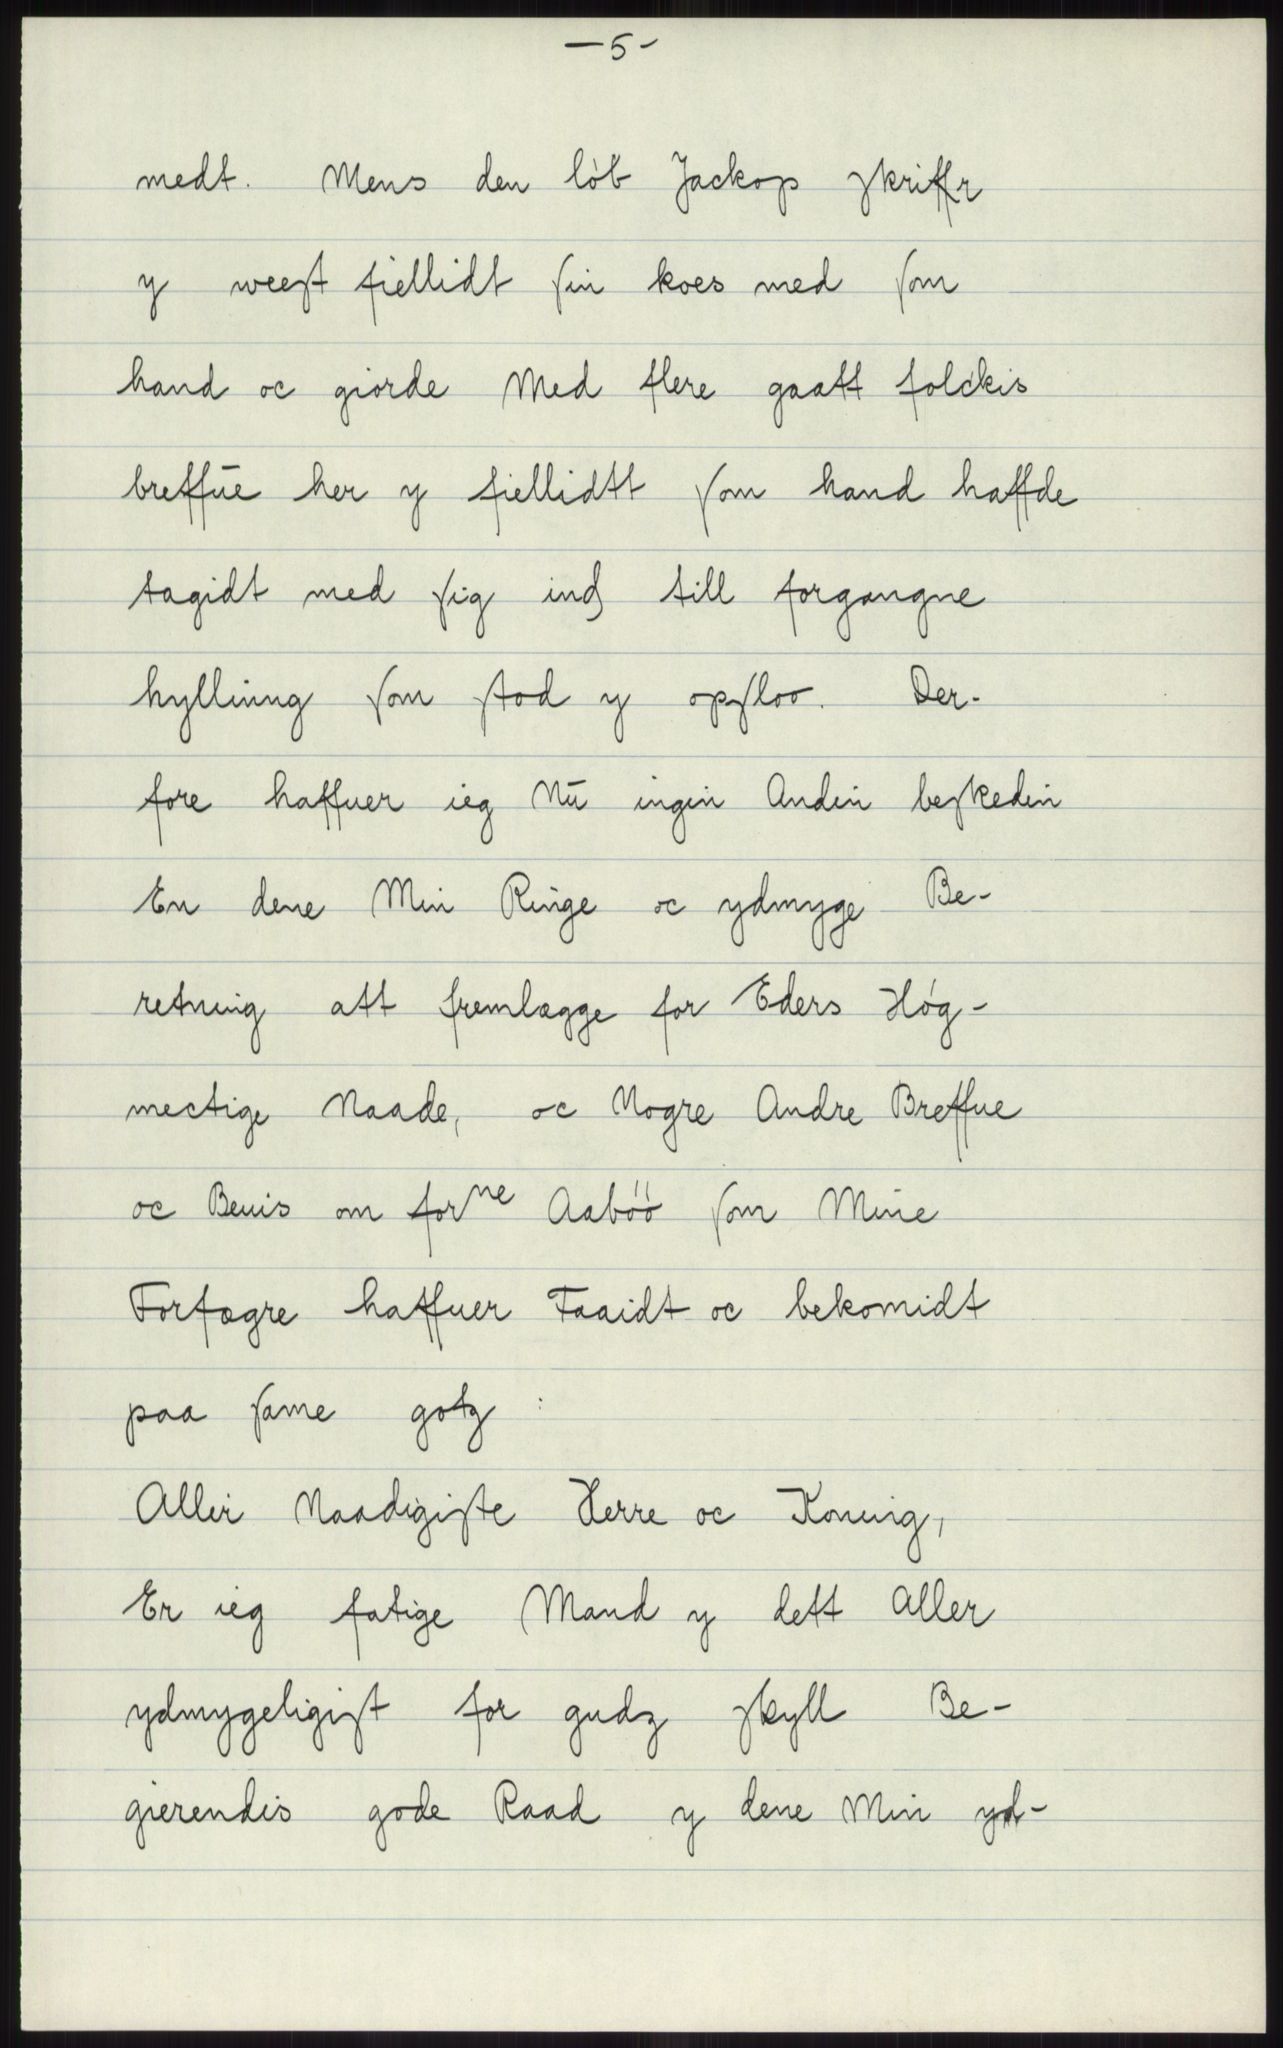 —5-
medt. Mens den löb Jackop skriffr
y weest fiellidt sin koes med som
hand oc giorde Med flere gaatt folckis
breffūe her y fiellidtt som hand haffde
tagidt med sig ind till forgangne
hyllning som stod y opsloo. Der-
fore haffuer ieg Nū ingin Andin beskedin
En dene Min Ringe oc ydmyge Be-
retning att fremlægge for Eders Høg-
mectige Naade, oc Nogre Andre Breffue
oc Beuis om forne Aaböö som Mine
Forfægre haffuer Faaidt oc bekomidt
paa same gotz :
Aller Naadigiste Herre oc Koning,
Er ieg fatige Mand y dett Aller
ydmygeligist for gudz skyll Be-
gierendis gode Raad y dene Min yd-